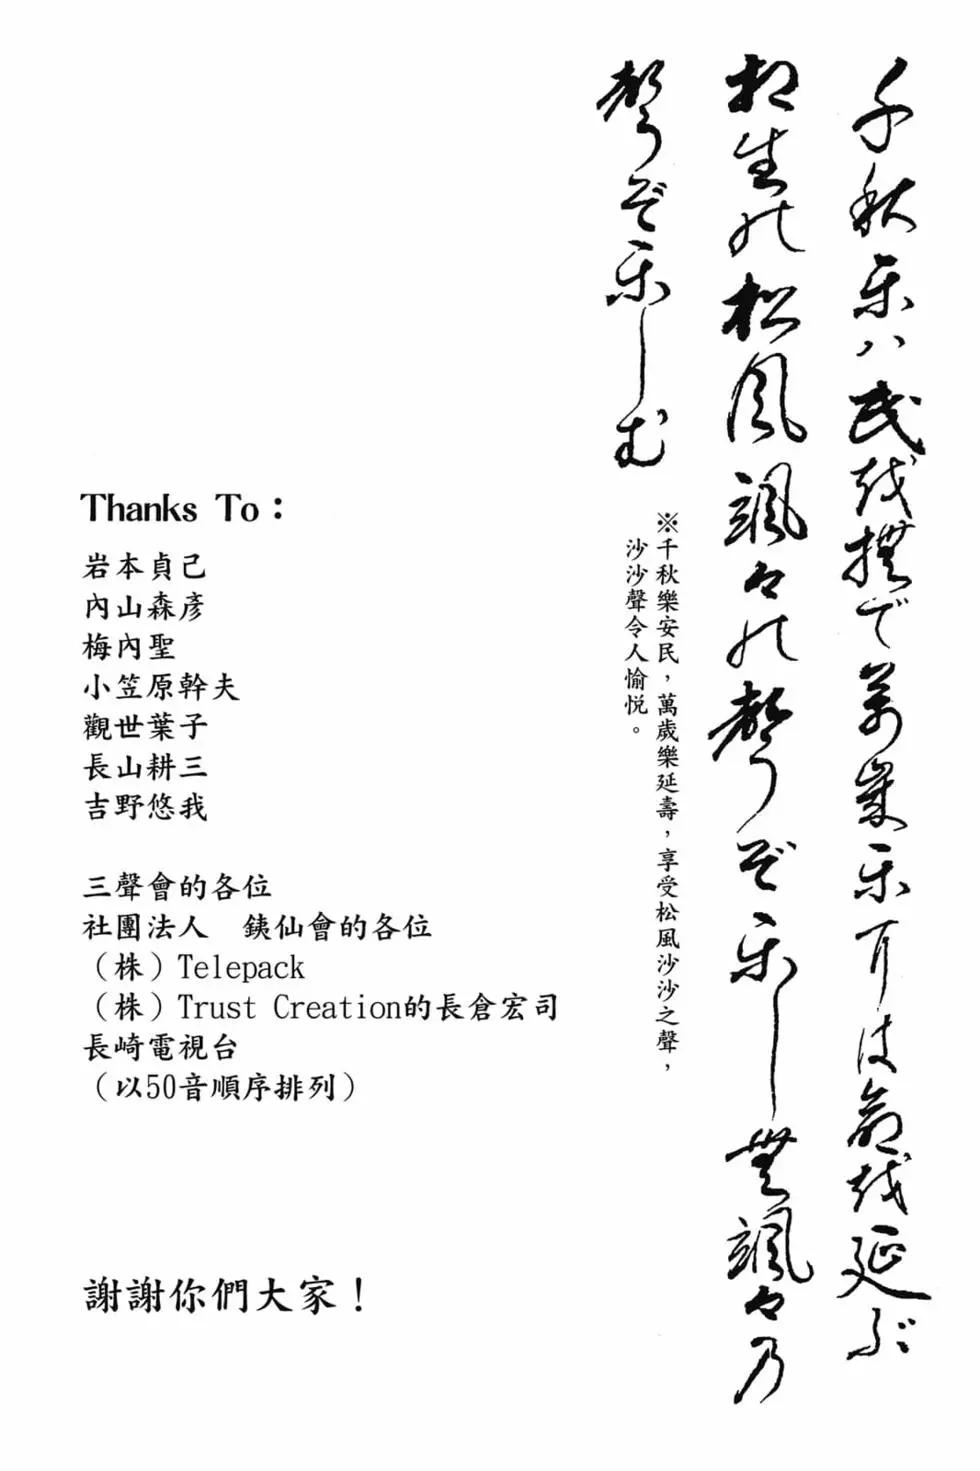 千秋楽ハ民越撫で萬歳楽耳は命越延ぶ
相生の松風颯々の聲ぞ楽し無颯々乃
聲ぞ楽しむ
※千秋樂安民，萬歲樂延壽，享受松風沙沙之聲，
沙沙聲令人愉悅。
Thanks To：
岩本貞己
內山森彥
梅內聖
小笠原幹夫
觀世葉子
長山耕三
吉野悠我
三聲會的各位
社團法人　銕仙會的各位
（株）Telepack
（株）Trust Creation的長倉宏司
長崎電視台
（以50音順序排列）
謝謝你們大家！